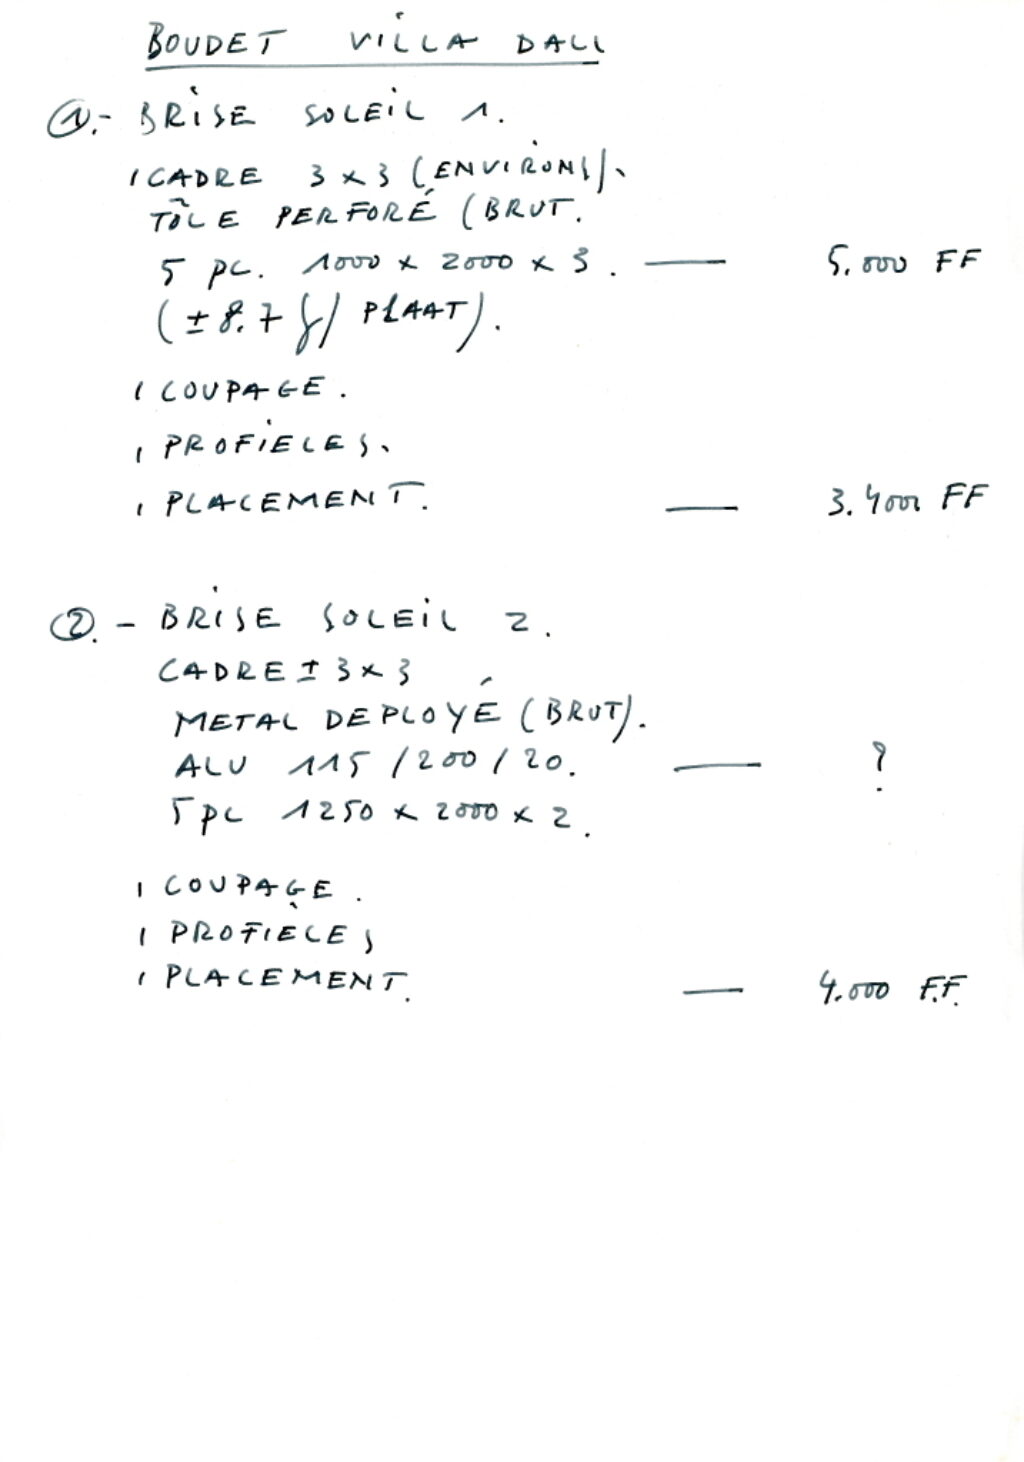 BOUDET VILLA DALL
1.- BRISE SOLEIL 1.
1 CADRE 3 x 3 (ENVIRONS).
TÔLE PERFORÉ (BRUT.
5 pc. 1000 x 2000 x 3. — 5.000 FF
(± 8.7 / PLAAT).
1 COUPAGE.
1 PROFIELES.
1 PLACEMENT. — 3.400 FF
2. - BRISE SOLEIL 2.
CADRE ± 3 x 3
METAL DEPLOYÉ (BRUT).
ALU 115 / 200 / 20. — ?
5 pc 1250 x 2000 x 2.
1 COUPAGE.
1 PROFIÈLES
1 PLACEMENT. — 4.000 F.F.